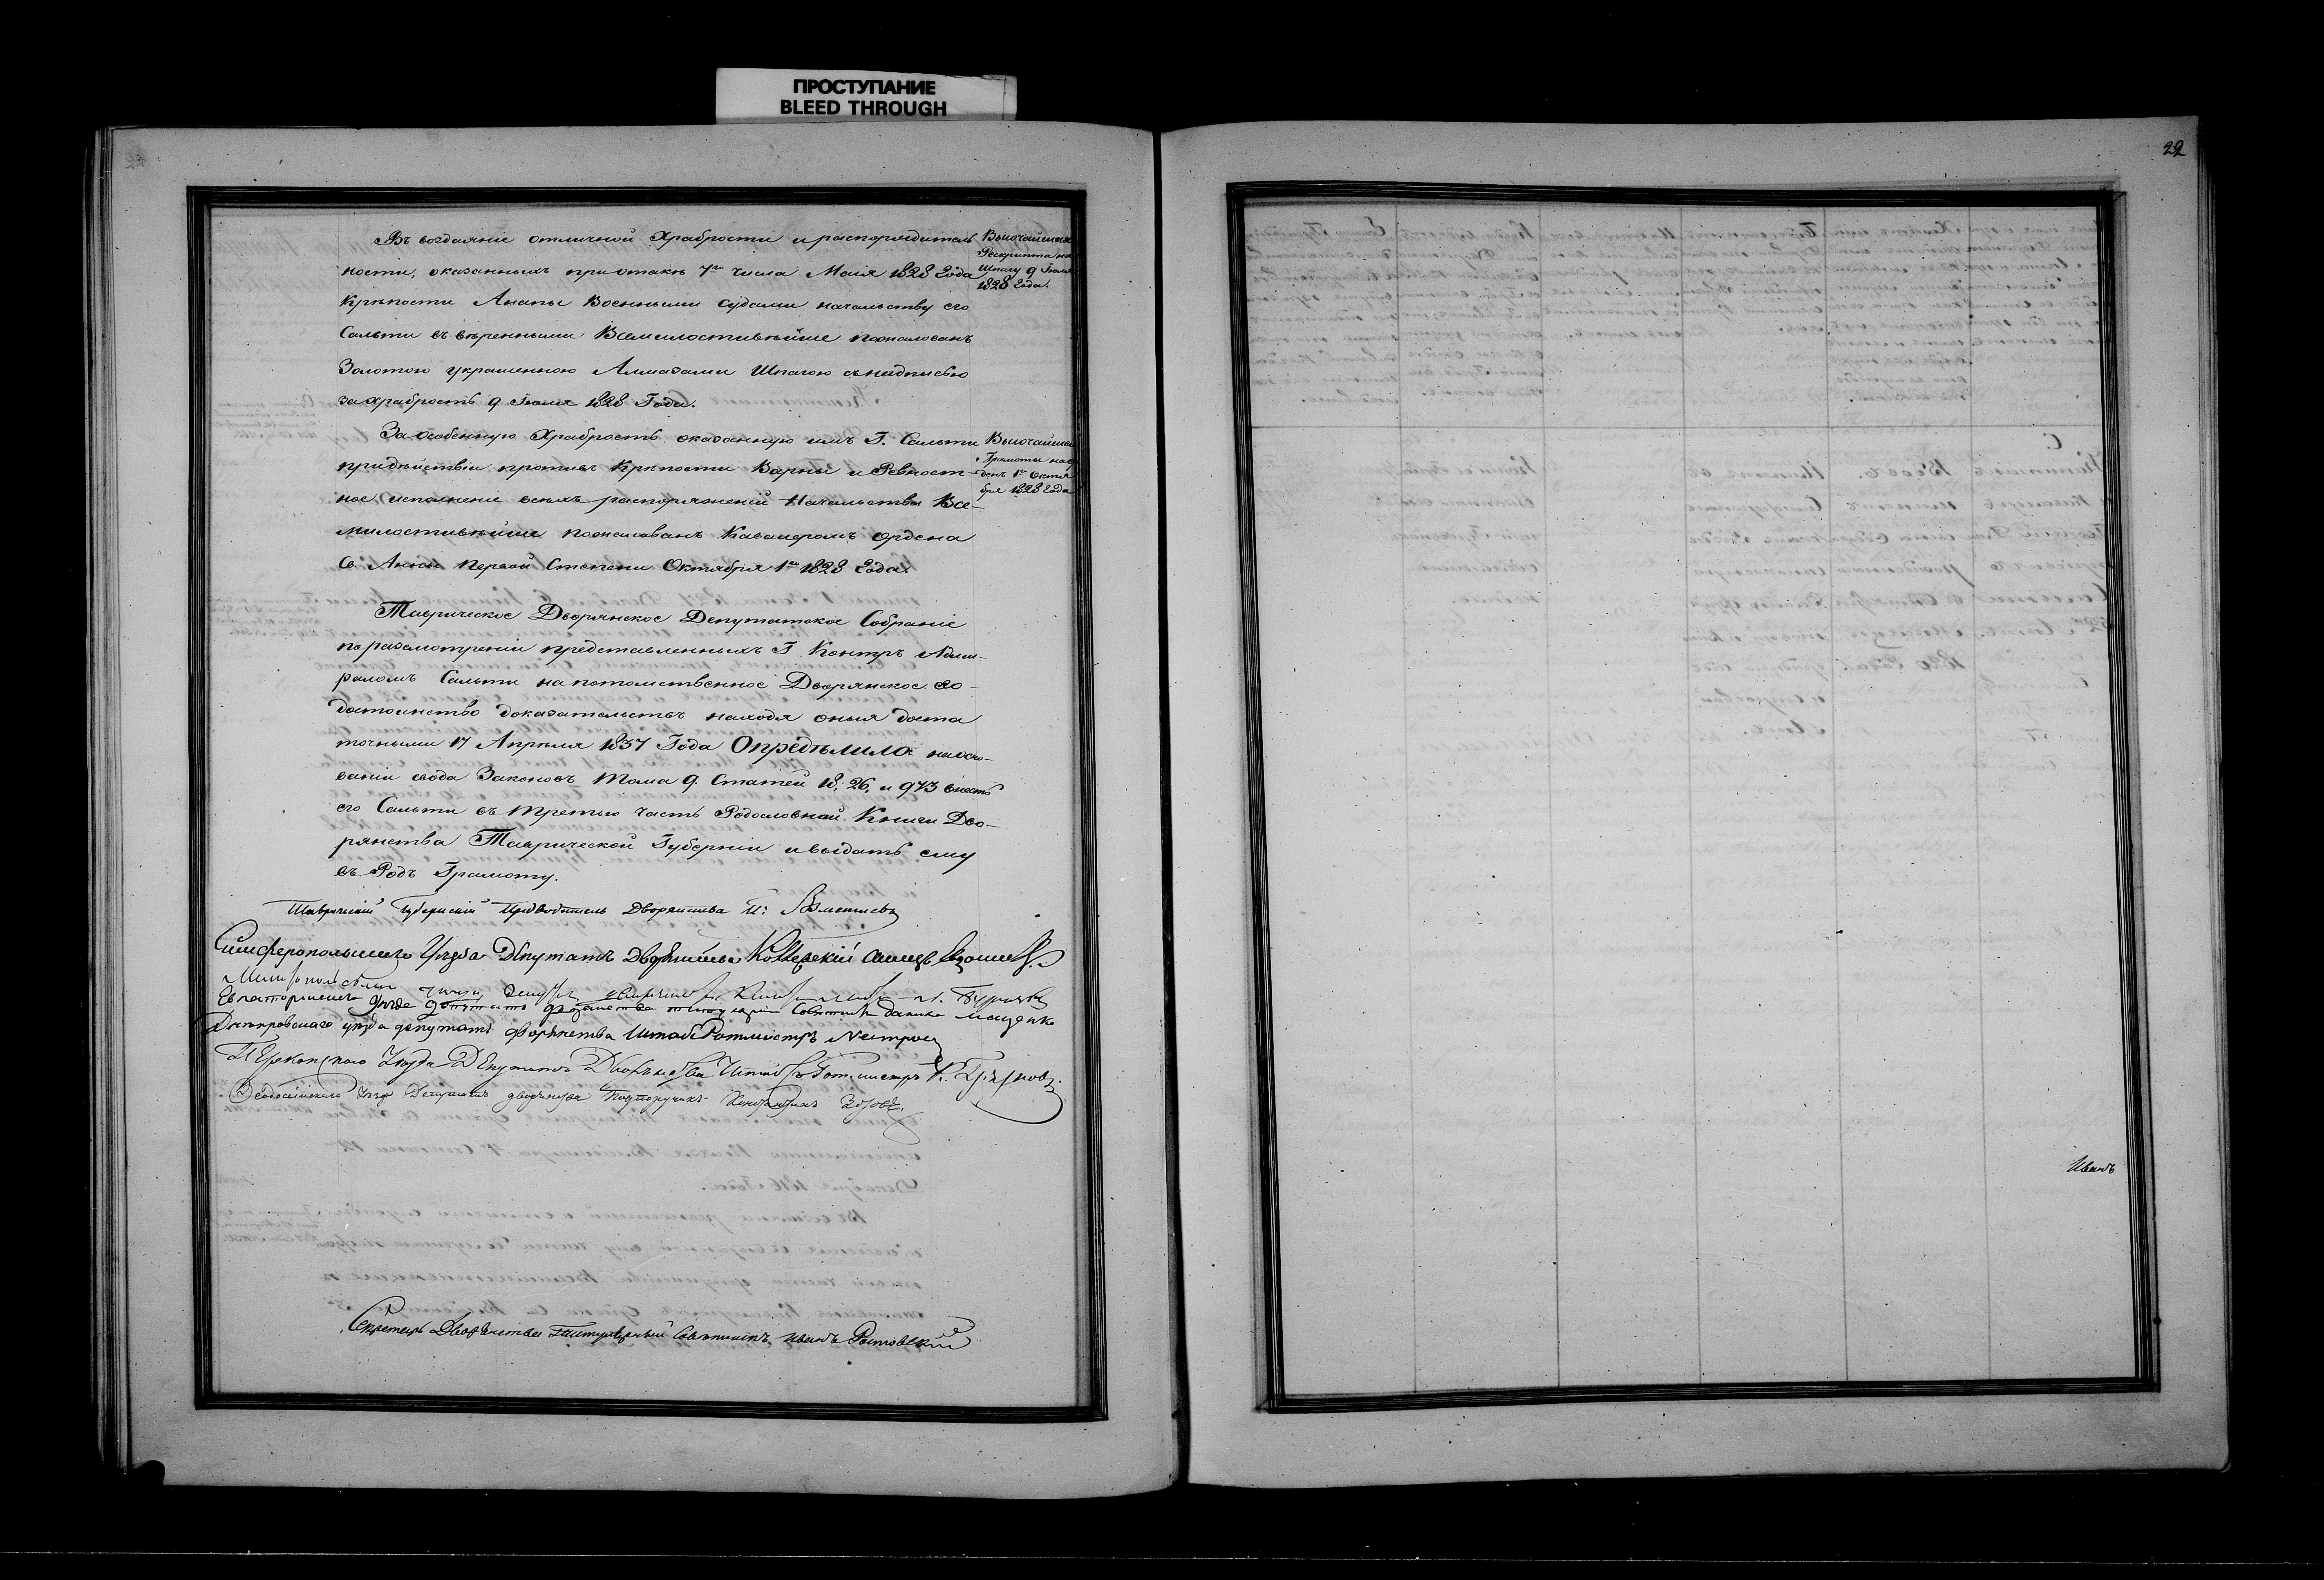 ПРОСТУПАНИЕ
BLEED THROUGH
22
Въ воздаяніе отличной храбрости и распорядитель
ности, оказанныхъ при отакѣ 7го числа Маія 1828 Года
Крѣпости Анапы Военными судами начальству его
Сальти въ вѣренными Всемилостивѣйше пожалованъ
Золотою украшенною Алмазами Шпагою съ надписью
за храбрость 9 Іюля 1828 Года.
Высочайшаго
Рескрипта на
Шпагу 9 Іюля
1828 Года.
За особенную Храбрость оказанную имъ Г. Сальти
при дѣйствіи противъ Крѣпости Варны и Ревност-
ное исполненіе всѣхъ распоряженій Начальства Все-
милостивѣйше пожалованъ Кавалеромъ Ордена
Св. Анны Первой Степени Октября 1го 1828 Года.
Высочайшей
Грамоты на ор
денъ 1го Октя
бря 1828 Года
Таврическое Дворянское Депутатское Собраніе
по разсмотреніи представленныхъ Г. Контръ Адми-
раломъ Сальти на потомственное Дворянское до-
стоинство доказательствъ находя оныя доста
точными 17 Апрѣля 1837 Года Опредѣлило: на осно-
ваніи свода Законовъ Тома 9. Статей 18, 26, и 973 внесть
его Сальти въ третью часть Родословной Книги Дво-
рянства Таврической Губерніи и выдать ему
въ Родъ Грамоту.
Таврическій Губернскій Предводитель Дворянства
Симферопольскаго Уѣзда Депутатъ Дворянства
Мелитопольскаго
Евпаторійскаго Уѣзда Депутатъ Дворянства Титулярный Совѣтникъ
Днѣпровскаго уѣзда депутатъ дворянства Штабс Ротмистръ
Перекопскаго Уѣзда Депутатъ Дворянства Штабсъ Ротмистръ
Ѳеодосійскаго Уѣзда Депутатъ дворянства Подпоручикъ Константинъ
Секретарь Дворянства Титулярный Совѣтникъ Иванъ Ростовскій
Иванъ